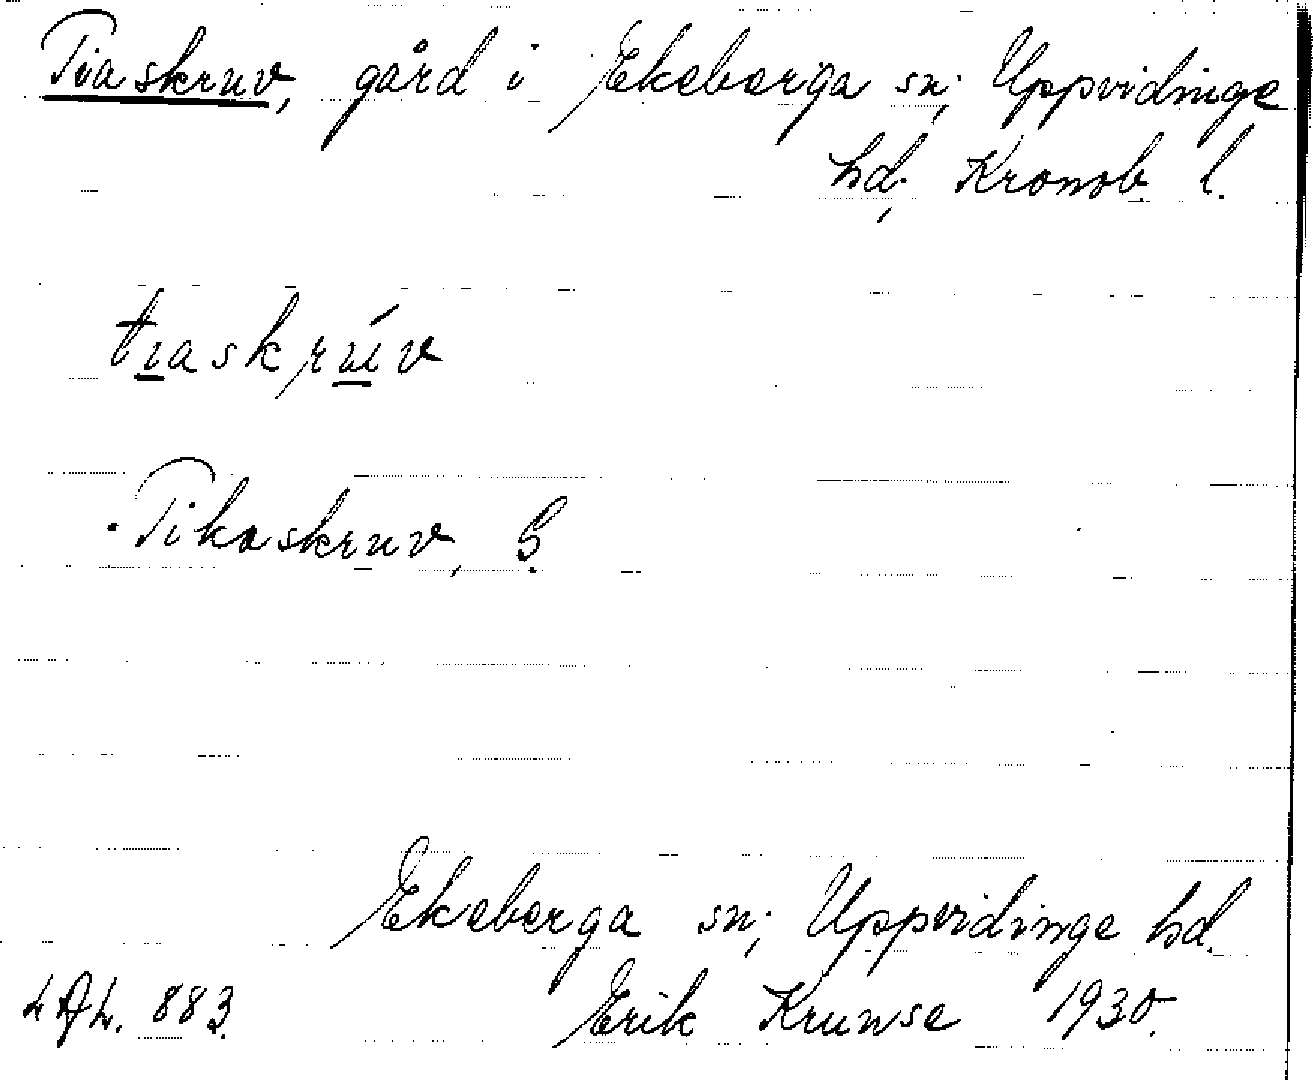 Tiaskruv, gård i Ekeberga sn; Uppvidinge
hd; Kronob. l.
tiaskrúv
Tikaskruv, G.
Ekeberga sn; Uppvidinge hd.
883. Erik Kruuse 1930.